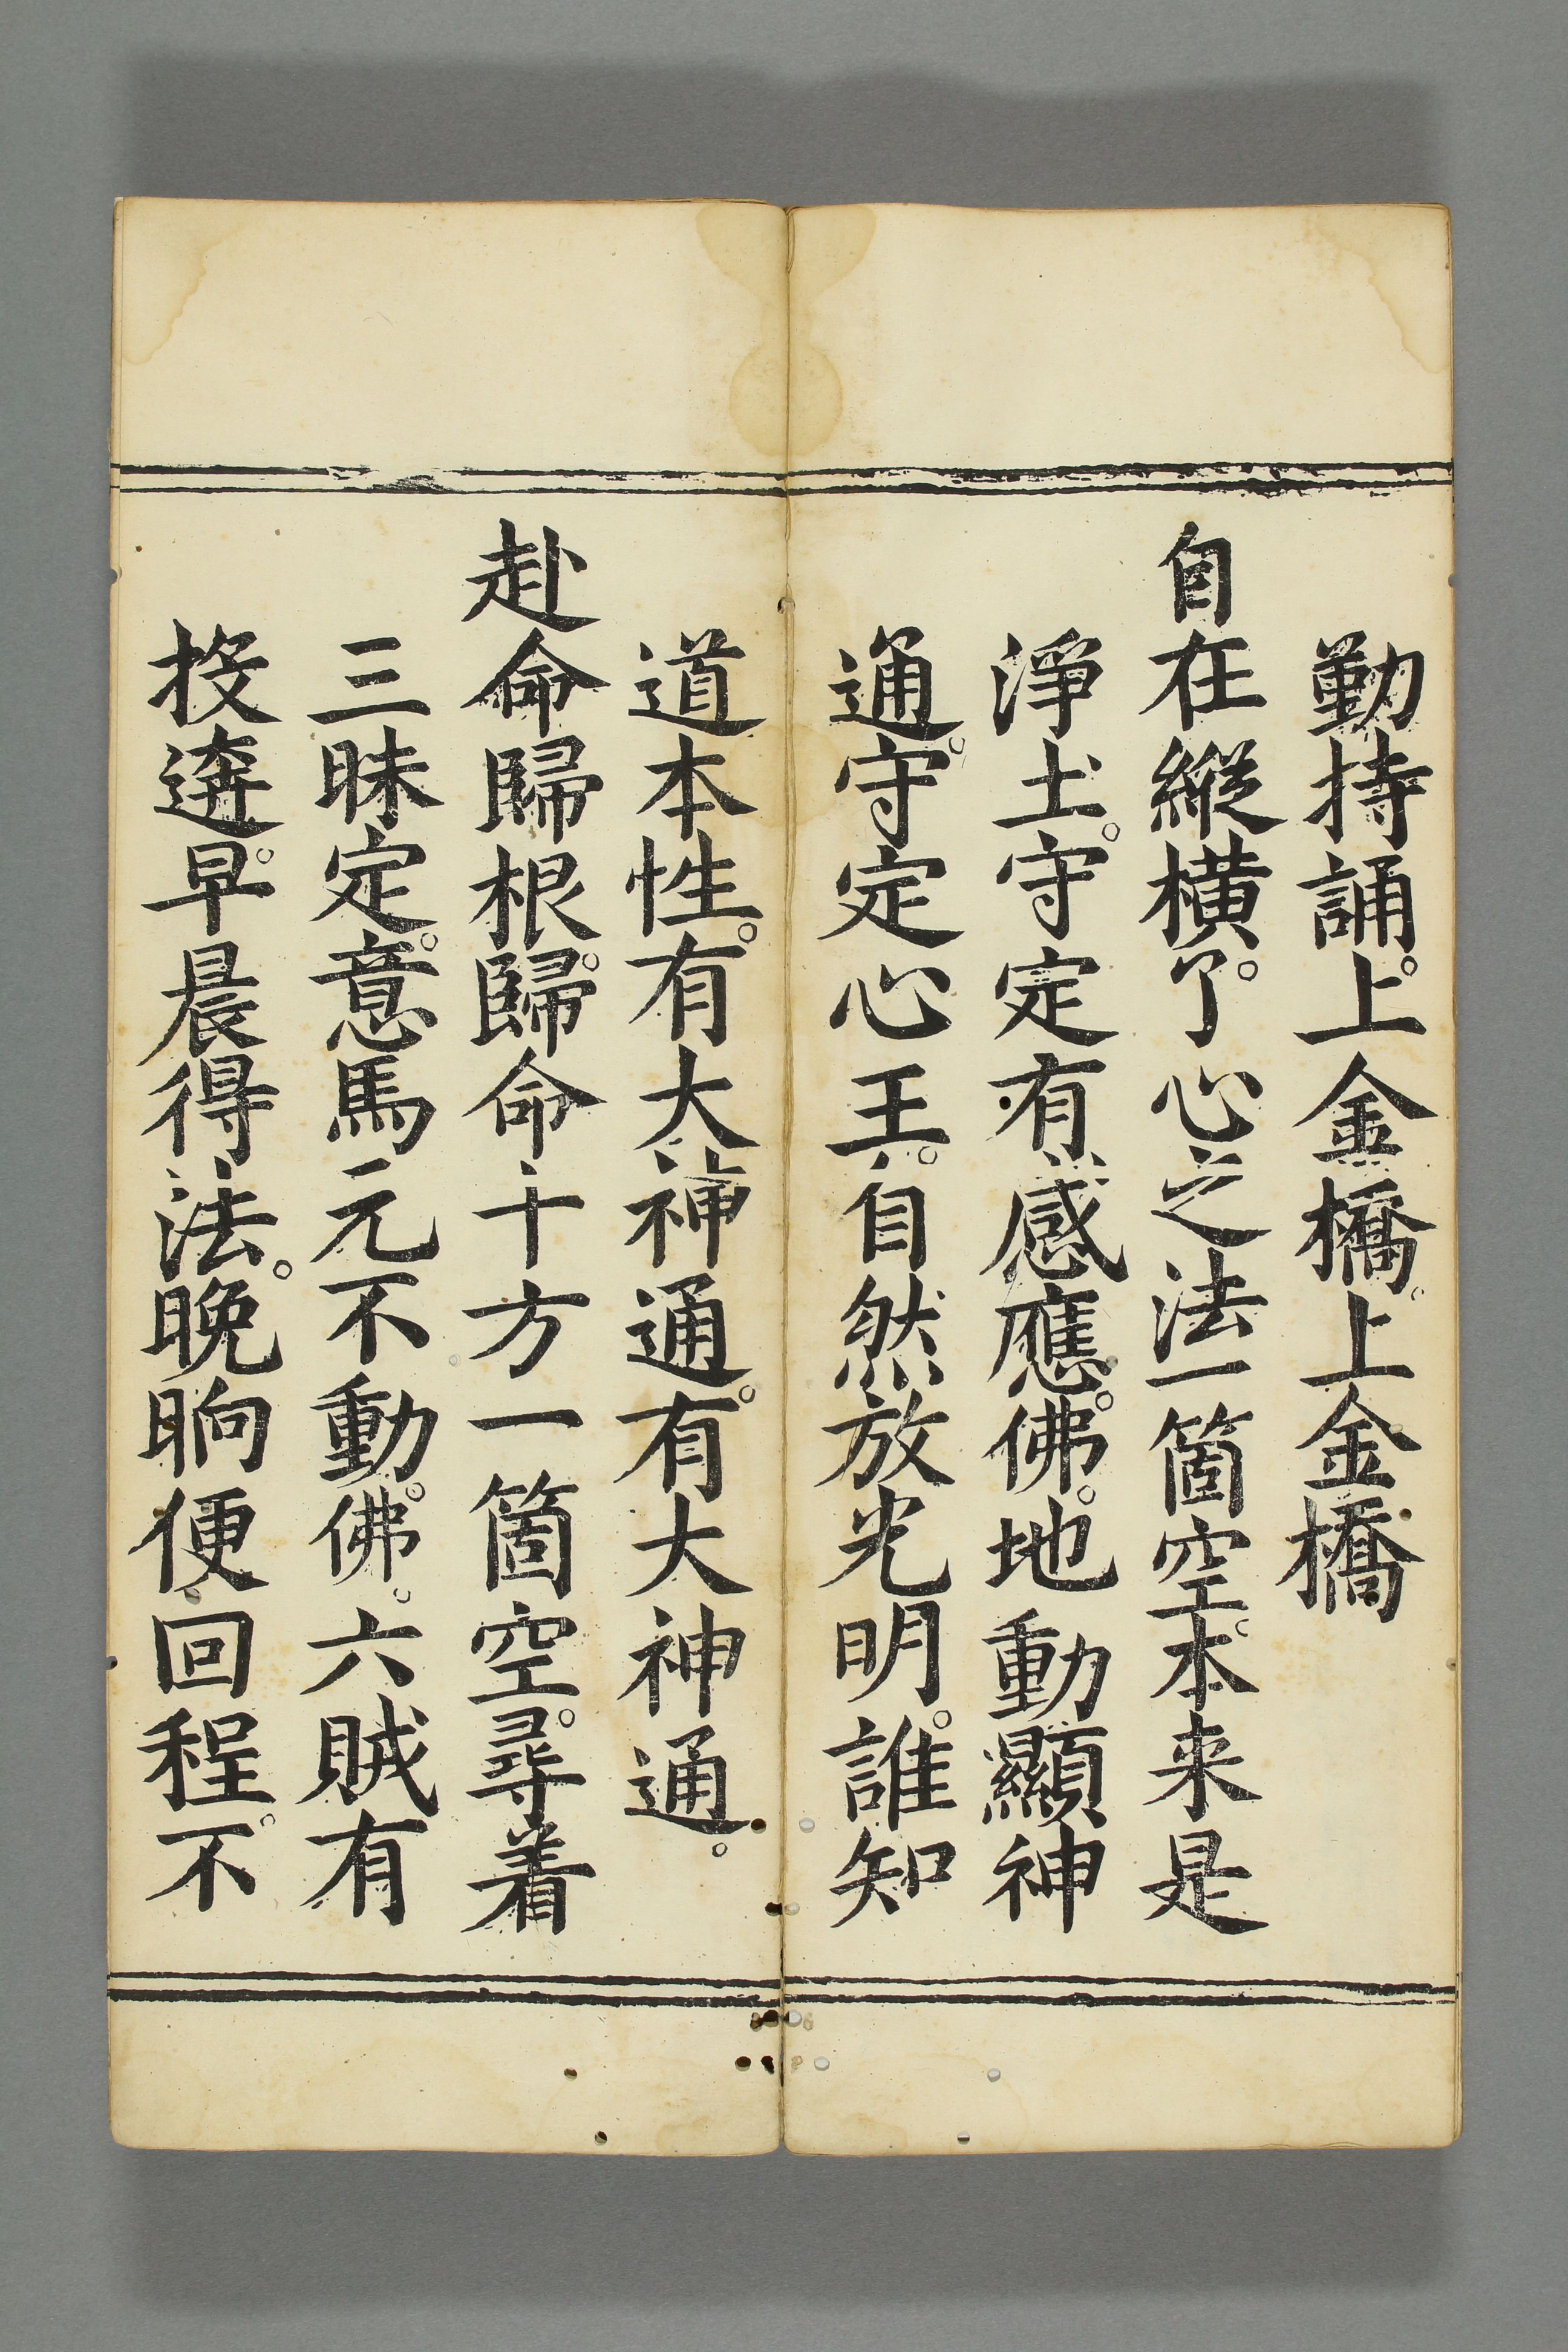 勤持誦。上金橋。上金橋
自在縱橫。了心之法一箇空。本来是
淨土。守定有感應。佛。地動顯神
通。守定心王。自然放光明。誰知
道本性。有大神通。有大神通。
赴命歸根。歸命十方一箇空。尋着
三昧定。意馬元不動。佛。六賊有
投逩。早晨得法。晚晌便回程。不